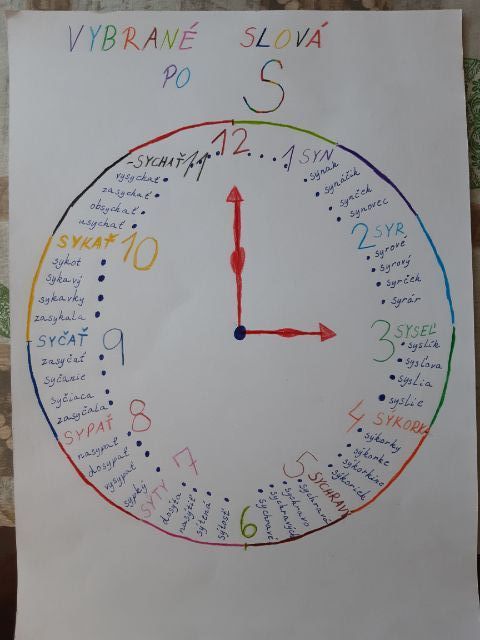 VYBRANÉ SLOVÁ
PO S
12
1 SYN
synak
synáčik
synček
synovec
2 SYR
syrové
syrový
syrček
syrár
3 SYSEĽ
syslík
sysľova
syslia
syslie
4 SÝKORKA
sýkorky
sýkorke
sýkorkine
sýkoriek
5 SYCHRAVÝ
sychravá
sychravo
sychravých
sychravé
6
7 SÝTY
dosýta
nasýtiť
sýtená
sýtosť
8 SYPAŤ
nasypať
dosypať
vysypať
sypký
9 SYČAŤ
zasyčať
syčanie
syčiaca
zasyčala
10 SYKAŤ
sykot
sykavý
sykavky
zasykala
11 -SYCHAŤ
vysychať
zasychať
obsychať
usychať